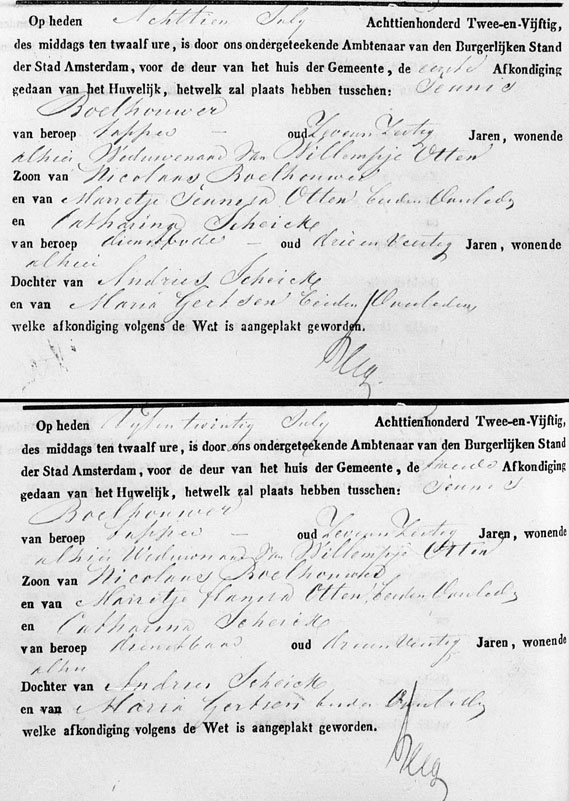 Op heden Achttien July Achttienhonderd Twee-en-Vijftig,
des middags ten twaalf ure, is door ons ondergeteekende Ambtenaar van den Burgerlijken Stand
der Stad Amsterdam, voor de deur van het huis der Gemeente, de eerste Afkondiging
gedaan van het Huwelijk, hetwelk zal plaats hebben tusschen: Teunis
Boelhouwer
van beroep tapper — oud Zevenenveertig Jaren, wonende
alhier Weduwenaar van Willempje Otten
Zoon van Nicolaas Boelhouwer
en van Marretje Otten beiden Overleden
en Catharina Scheick
van beroep dienstbode — oud drieenveertig Jaren, wonende
alhier
Dochter van Andries Scheick
en van Maria Gertsen beiden Overleden,
welke afkondiging volgens de Wet is aangeplakt geworden.
Op heden Vijfentwintig July Achttienhonderd Twee-en-Vijftig,
des middags ten twaalf ure, is door ons ondergeteekende Ambtenaar van den Burgerlijken Stand
der Stad Amsterdam, voor de deur van het huis der Gemeente, de tweede Afkondiging
gedaan van het Huwelijk, hetwelk zal plaats hebben tusschen: Teunis
Boelhouwer
van beroep tapper — oud Zevenenveertig Jaren, wonende
alhier Weduwenaar van Willempje Otten
Zoon van Nicolaas Boelhouwer
en van Marretje Otten beiden Overleden
en Catharina Scheick
van beroep oud drieenveertig Jaren, wonende
alhier
Dochter van Andries Scheick
en van Maria Gertsen beiden Overleden
welke afkondiging volgens de Wet is aangeplakt geworden.